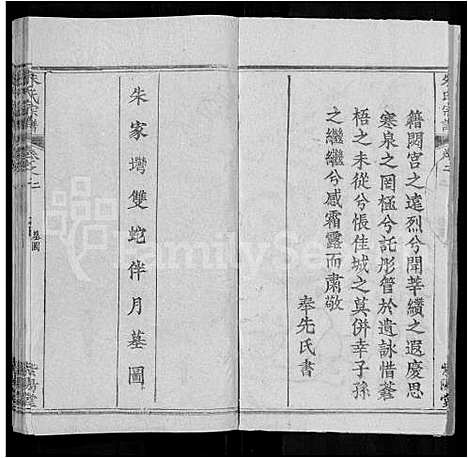 朱氏宗譜
卷之二
籍閟宮之遠烈兮聞莘纘之遐慶思
寒泉之罔極兮託彤管於遺詠惜蒼
梧之未從兮悵佳城之莫併幸子孫
之繼繼兮感霜露而肅敬
奉先氏書
紫陽堂
朱家塆雙蛇伴月墓圖
朱氏宗譜
卷之二
墓圖
紫陽堂
FamilySe